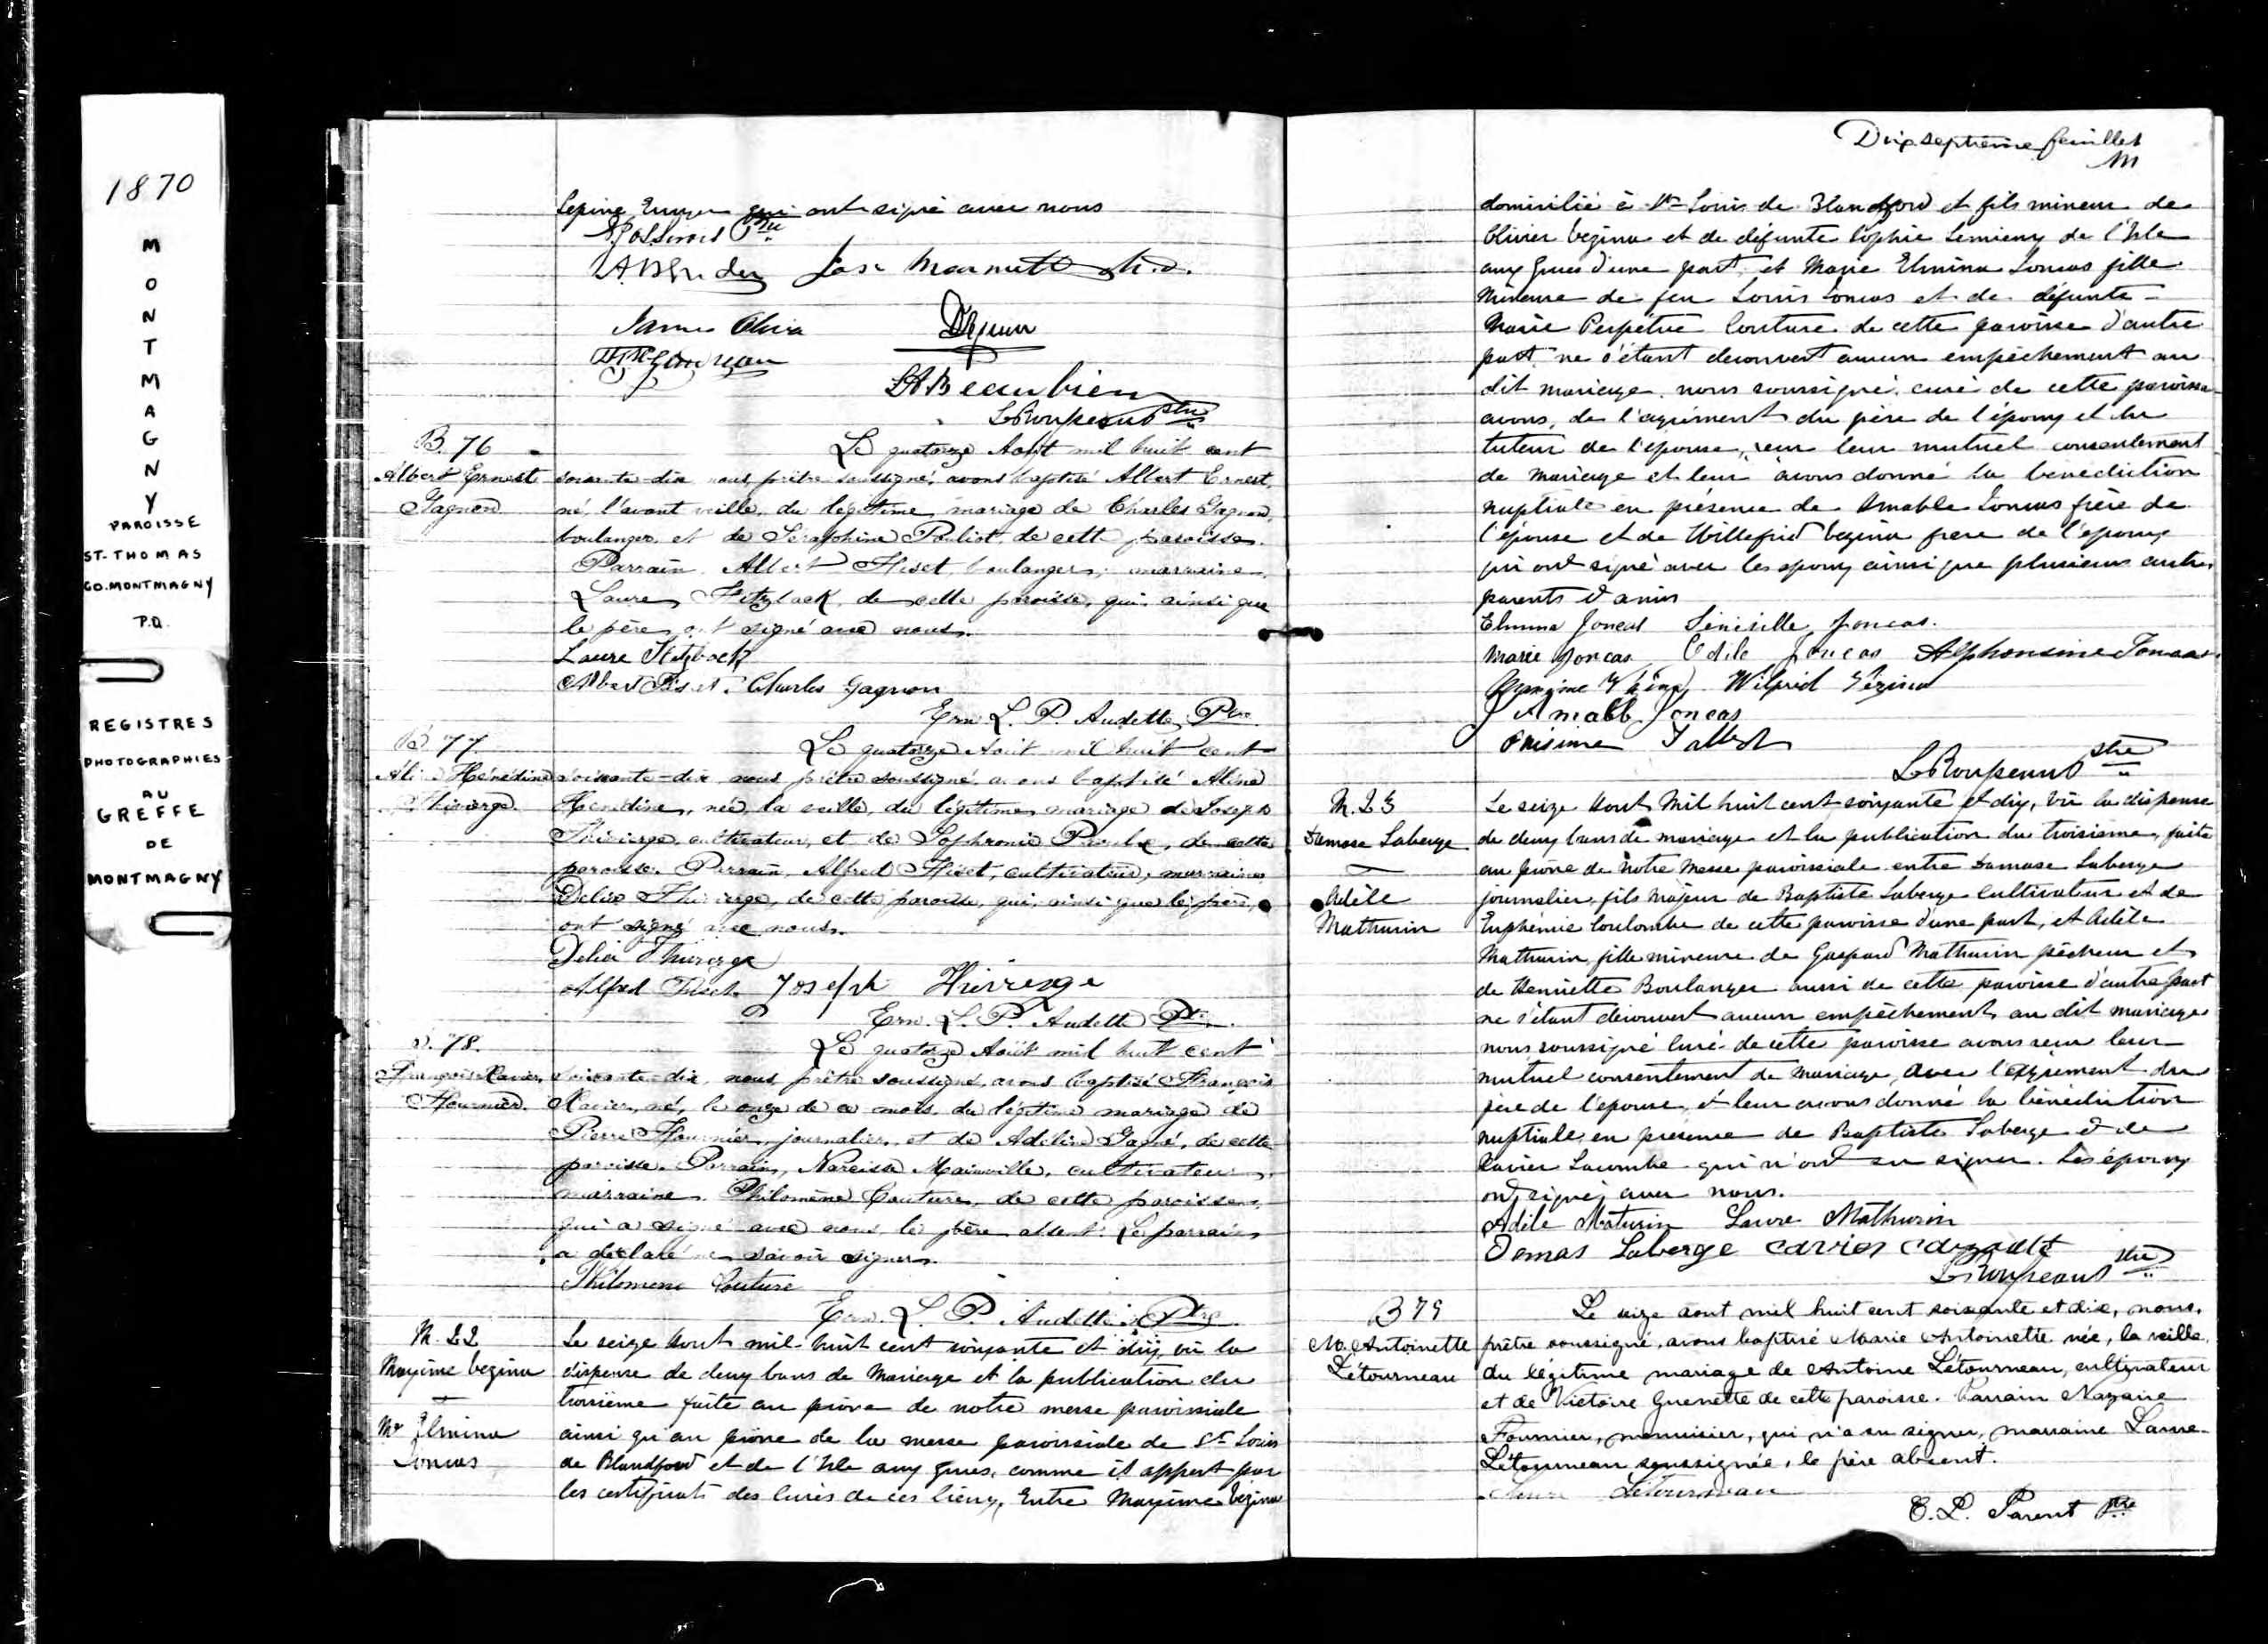 1870
MONTMAGNY
PAROISSE
ST-THOMAS
CO. MONTMAGNY
P.Q.
REGISTRES
PHOTOGRAPHIES
AU
GREFFE
DE
MONTMAGNY
qui ont signé avec nous
Ptre
James Oliva
Beaubien
LRousseau Ptre
B. 76
Albert Ernest
Gagnon
Le quatorze Août mil huit cent
soixante-dix nous, prêtre soussigné, avons baptisé Albert Ernest,
né, l'avant veille, du légitime mariage de Charles Gagnon,
boulanger, et de Séraphine Pouliot, de cett paroisse.
Parrain, Albert Fiset, boulanger; marraine,
Laure Fitzback, de cette paroisse, qui, ainsi que
le père, ont signé avec nous.
Laure Fitzback
Albert Fiset Charles Gagnon
Ern L. P. Audette, Ptre
B 77
Hénédine
Thivierge
Le quatorze Août mil huit cent
soixante-dix, nous prêtre soussigné, avons baptisé Aline
Hénédine, née, la veille, du légitime mariage de Joseph
Thivierge, cultivateur, et de Sophronie, de cette
paroisse. Parrain, Alfred Fiset, cultivateur, marraine
Délia Thivierge, de cette paroisse, qui, ainsi que le père,
ont signé avec nous.
Delia Thivierge
Alfred Fiset Joseph Thivierge
Ern. L. P. Audette Ptre.
B. 78.
François Xavier
Fournier.
Le quatorze Août mil huit cent
soixante-dix, nous, prêtre soussigné, avons baptisé François
Xavier, né, le onze de ce mois, du légitime mariage de
Pierre Fournier, journalier, et de Adéline Gagné, de cette
paroisse. Parrain, Narcisse Mainville, cultivateur,
marraine, Philomène Couture, de cette paroisse,
qui a signé avec nous, le père absent. Le parrain
a déclaré ne savoir signer.
Philomene Couture
Ern. L. P. Audette Ptre
M. 22
Maxime Vezina
Me Elmina
Joncas
Le seize Aout mil huit cent soixante et dix, vû la
dispense de deux bans de mariage et la publication du
troisième faite au prône de notre messe paroissiale
ainsi qu'au prône de la messe paroissiale de St Louis
de Blandford et de l'Isle aux Grues, comme il appert par
les certificats des curés de ces lieux, Entre Maxime Vezina
Dix septième feuillet
domicilié à St Louis de Blandford et fils mineur de
Olivier Vezina et de défunte Sophie Lemieux de l'Isle
aux Grues d'une part, et Marie Elmina Joncas fille
mineure de feu Louis Joncas et de défunte
Marie Perpetue Couture de cette paroisse d'autre
part, ne s'étant decouvert aucun empêchement au
dit mariage, nous soussigné, curé de cette paroisse
avons, de l'agrément du père de l'époux et du
tuteur de l'épouse, reçu leur mutuel consentement
de mariage et leur avons donné la benediction
nuptiale en présence de Amable Joncas frère de
l'épouse et de Willefrid Vezina frere de l'époux
qui ont signé avec les époux ainsi que plusieurs autres
parents & amis
Elmina Joncas Joncas.
Marie Joncas Odile Joncas Alphonsine Joncas
Maxime Vézina Wilfrid Vézina
Amable Joncas
Onisime Talbot
LRousseau Ptre
M. 23
Damase Laberge
Adèle
Mathurin
Le seize Aout Mil huit cent soixante et dix, vû la dispense
de deux bans de mariage et la publication du troisieme, faite
au prône de notre messe paroissiale entre Damase Laberge
journalier, fils majeur de Baptiste Laberge Cultivateur et de
Euphémie Coulombe de cette paroisse d'une part, et Adèle
Mathurin fille mineure de Gaspard Mathurin pêcheur et
de Henriette Boulanger aussi de cette paroisse d'autre part
ne s'étant découvert aucun empêchement au dit mariage
nous soussigné Curé de cette paroisse avons reçu leur
mutuel consentement de mariage, avec l'agrément du
père de l'epouse, et leur avons donné la bénédiction
nuptiale, en présence de Baptiste Laberge & de
Xavier Lacombe qui n'ont su signer. Les époux
ont signé avec nous.
Adèle Maturin Laure Mathurin
Domas Laberge
LRousseau Ptre
B 79
M. Antoinette
Létourneau
Le seize aout mil huit cent soixante et dix, nous,
prêtre soussigné, avons baptisé Marie Antoinette née, la veille,
du légitime mariage de Antoine Létourneau, cultivateur
et de Victoire Guenette de cette paroisse. Parrain Nazaire
Fournier, menuisier, qui n'a su signer, marraine Laure
Létourneau soussignée, le père absent.
Laure Létourneau
E. L. Parent Ptre